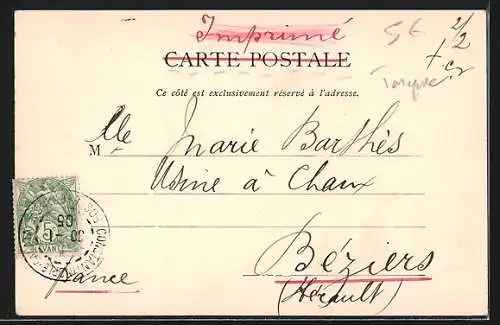 Imprimé
CARTE POSTALE
Ce côté est exclusivement réservé à l'adresse.
M lle Marie Barthès
Usine à Chaux
Béziers
(Hérault)
France